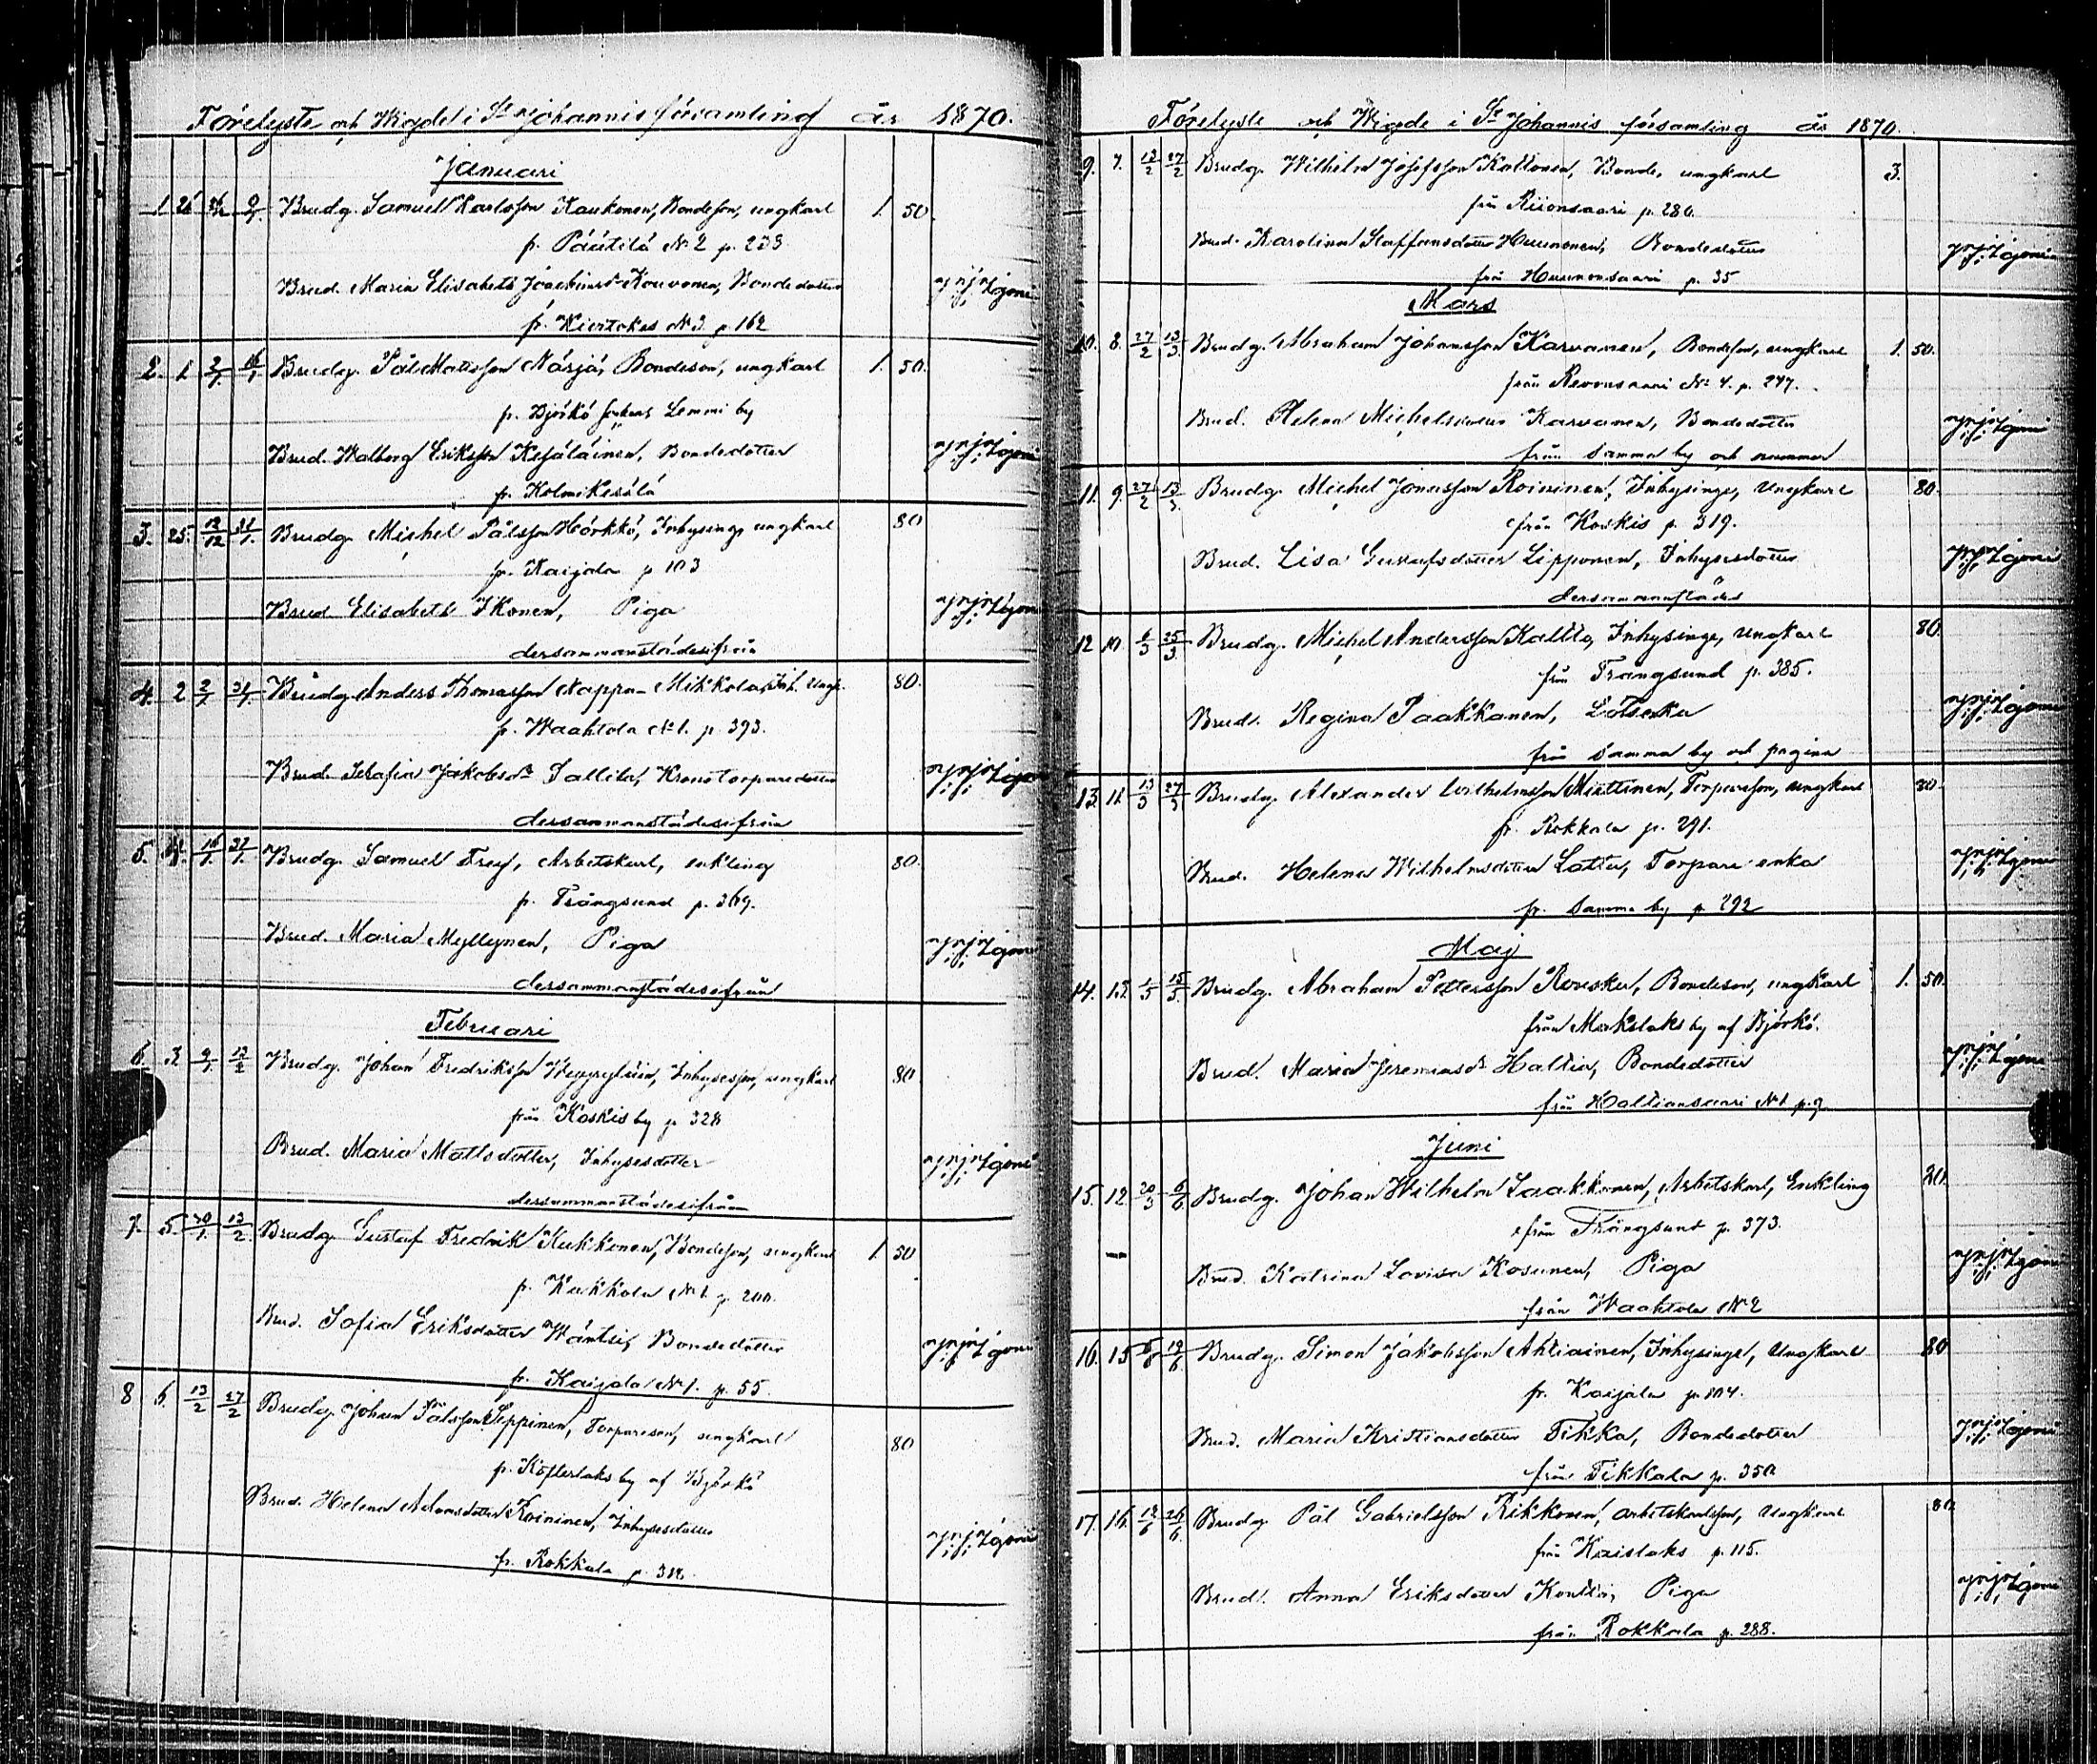 Förelyste och Wigde i St Johannis församling år 1870.
Januari
1. 26/12 9/1 Brudg. Samuel Karlsson Kaukonen, Bondeson, ungkarl 1. 50.
fr. Päätilä No 2 p. 233
Brud. Maria Elisabeth Joachimsdr Kouvonen, Bondedotter
fr. Kiertokas No 3. p 162
2. 1. 2/1 16/1 Brudg. Pål Mattsson Näsjä, Bondeson, ungkarl 1. 50.
fr. Björkö sokns Lemmi by
Brud. Walborg Eriksson Kesäläinen, Bondedotter
fr. Kolmikesälä
3. 25. 12/12 31/1 Brudg. Michel Pålsson Hörkkö, Inhysing, ungkarl 80
fr. Kaijala p 103
Brud Elisabeth Ikonen, Piga
dersammanstädesifrån
4. 2 2/1 31/1 Brudg Anders Thomasson Nappa-Mikkola, Inh. Ungk. 80.
fr. Waahtola No 1. p. 393.
Brud. Serafia Jakobsdr Tallila, Kronotorparedotter
dersammanstädesifrån
5. 16/1 31/1 Brudg. Samuel Frey, Arbetskarl, enkling 80.
fr. Trångsund p. 369.
Brud. Maria Myllynen, Piga
dersammanstädesifrån
Februari
6. 3. 9/1 13/2 Brudg. Johan Fredriksson, Inhysesson, ungkarl 80
från Koskis by p 328
Brud. Maria Mattsdotter, Inhysesdotter
dersammanstädesifrån
7. 5. 30/1 13/2 Brudg Gustaf Fredrik Kukkonen, Bondeson, ungkarl 1. 50
fr. Kukkola No 1. p. 200.
Brud. Sofia Eriksdotter Wäntsi, Bondedotter
fr. Kaijala No 1. p. 55.
8 6. 13/2 27/2 Brudg. Johan Pålsson Seppinen, Torpareson, ungkarl 80
fr. Kösterlaks by af Björkö
Brud. Helena Adamsdotter Roininen, Inhysesdotter
fr. Rokkala p. 318.
Förelyste och Wigde i St Johannis församling år 1870.
9. 7. 13/2 27/2 Brudg. Wilhelm Josefsson Kattonen, Bonde, ungkarl 3.
från Riionsaari p. 286.
Brud. Karolina Staffansdotter Huunonen, Bondedotter
från Huunonsaari p. 35
Mars
10. 8. 27/2 13/3 Brudg. Abraham Johansson Karvanen, Bondeson, ungkarl 1. 50.
från Revonsaari No 4. p. 247.
Brud. Helena Michelsdotter Karvanen, Bondedotter
från samma by och nummer
11. 9. 27/2 13/3 Brudg. Michel Jonasson Roininen, Inhysinge, Ungkarl 80.
från Koskis p. 319.
Brud. Lisa Gustafsdotter Lipponen, Inhysesdotter
dersammanstädes
12 10. 6/3 25/3 Brudg. Michel Andersson Kallila, Inhysinge, Ungkarl 80.
från Trångsund p. 385.
Brud. Regina Paakkanen, Lotsenka
från samma by och pagina
13. 11. 13/3 27/3 Brudg. Alexander Wilhelmsson Miettinen, Torpareson, ungkarl 80.
fr. Rokkala p. 291.
Brud. Helena Wilhelmsdotter Lattu, Torpare enka
fr. samma by p 292
Maj
14. 13. 1/5 15/5 Brudg. Abraham Pettersson Rouska, Bondeson, ungkarl 1. 50.
från Makslaks by af Björkö.
Brud. Maria Jeremiasdr Haltia, Bondedotter
från Haltiansaari No 1 p. 9.
Juni
15. 12. 20/3 6/6 Brudg. Johan Wilhelm Laakkonen, Arbetskarl, Enkling 20.
från Trångsund p. 373.
Brud. Katrina Lovisa Kosunen, Piga
från Waahtola No 2
16. 15 5/6 19/6 Brudg. Simon Jakobsson Ahtiainen, Inhysinge, Ungkarl 80
fr. Kaijala p. 104.
Brud. Maria Kristiansdotter Tikka, Bondedotter
från Tikkala p. 350
17. 16. 12/6 26/6 Brudg. Pål Gabrielsson Rikkonen, arbetskarlsson, Ungkarl 80.
från Kaislaks p. 115.
Brud. Anna Eriksdotter Konttia, Piga
från Rokkala p. 288.